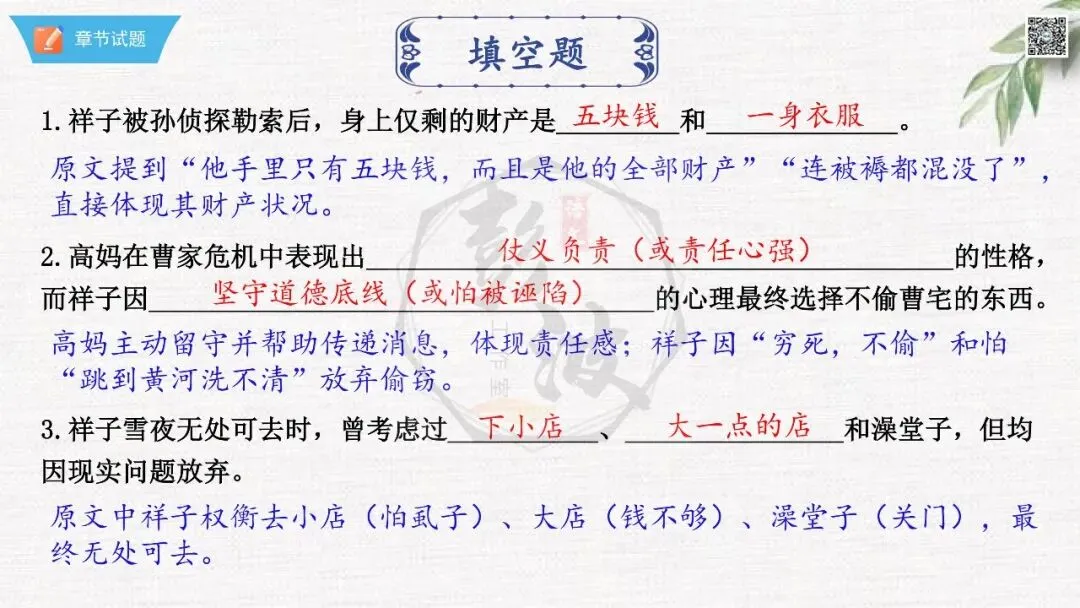 章节试题
填空题
1.祥子被孙侦探勒索后，身上仅剩的财产是 五块钱 和 一身衣服 。
原文提到“他手里只有五块钱，而且是他的全部财产”“连被褥都混没了”，
直接体现其财产状况。
2.高妈在曹家危机中表现出 仗义负责（或责任心强） 的性格，
而祥子因 坚守道德底线（或怕被诬陷） 的心理最终选择不偷曹宅的东西。
高妈主动留守并帮助传递消息，体现责任感；祥子因“穷死，不偷”和怕
“跳到黄河洗不清”放弃偷窃。
3.祥子雪夜无处可去时，曾考虑过 下小店 、 大一点的店 和澡堂子，但均
因现实问题放弃。
原文中祥子权衡去小店（怕虱子）、大店（钱不够）、澡堂子（关门），最
终无处可去。